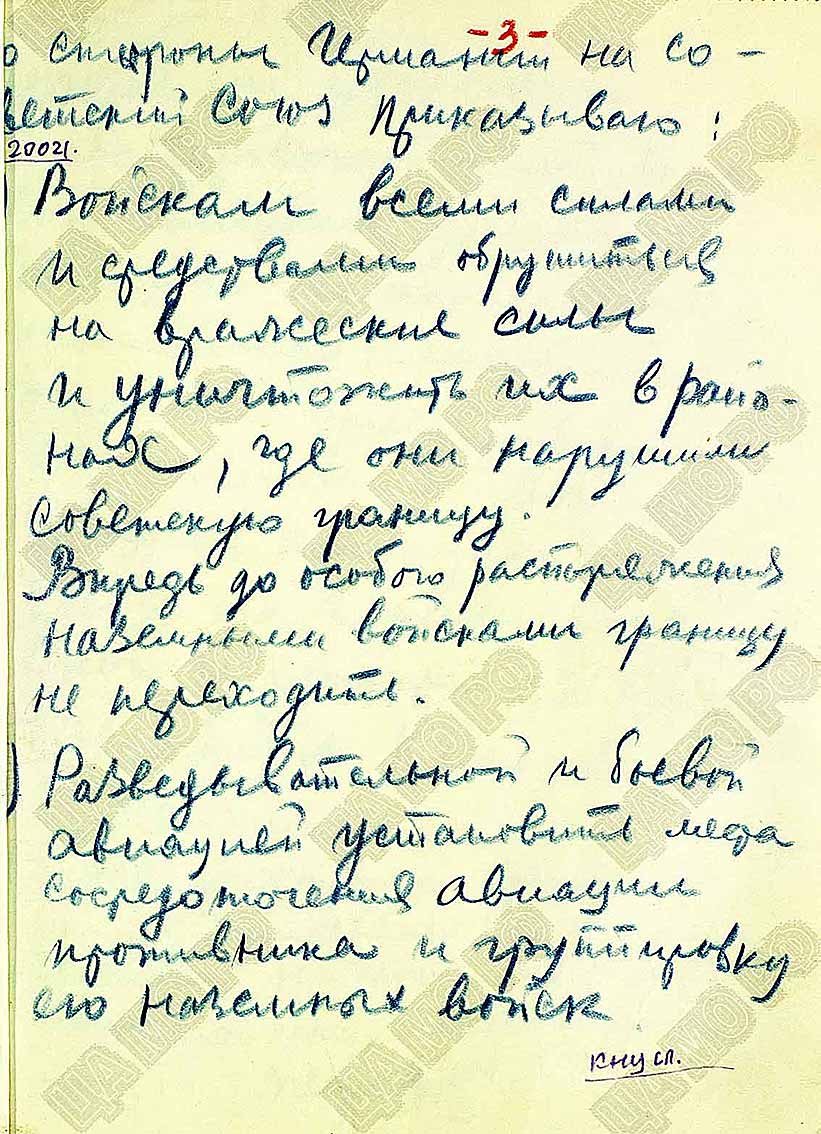 -3-
о стороны Германии на со-
ветский Союз приказываю:
20021.
) Войскам всеми силами
и средствами обрушиться
на вражеские силы
и уничтожить их в райо-
нах, где они нарушили
советскую границу.
Впредь до особого распоряжения
наземными войсками границу
не переходить.
) Разведывательной и боевой
авиацией установить места
сосредоточения авиации
противника и группировку
его наземных войск
ЦАМО РФ